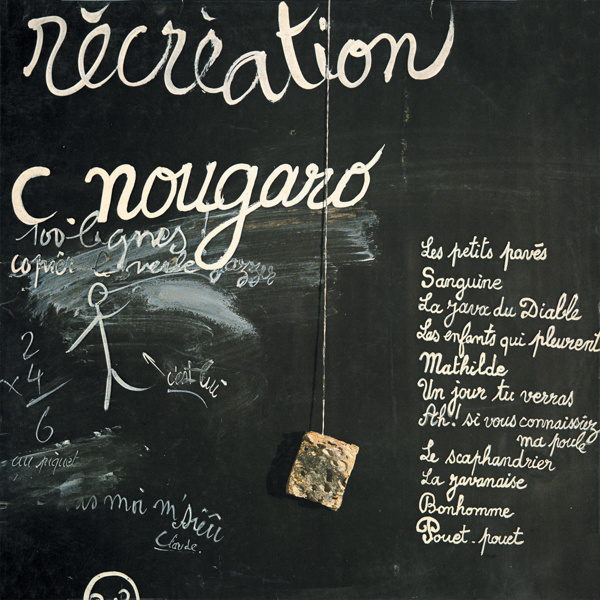 récréation
c nougaro
100 lignes!
copier le verbe
c'est lui
2
x 4
6
au piquet
pas moi m'siêu
Claude.
Les petits pavés
Sanguine
La java du Diable
Les enfants qui pleurent
Mathilde
Un jour tu verras
Ah! si vous connaissiez
ma poule
Le scaphandrier
La javanaise
Bonhomme
Pouet-pouet